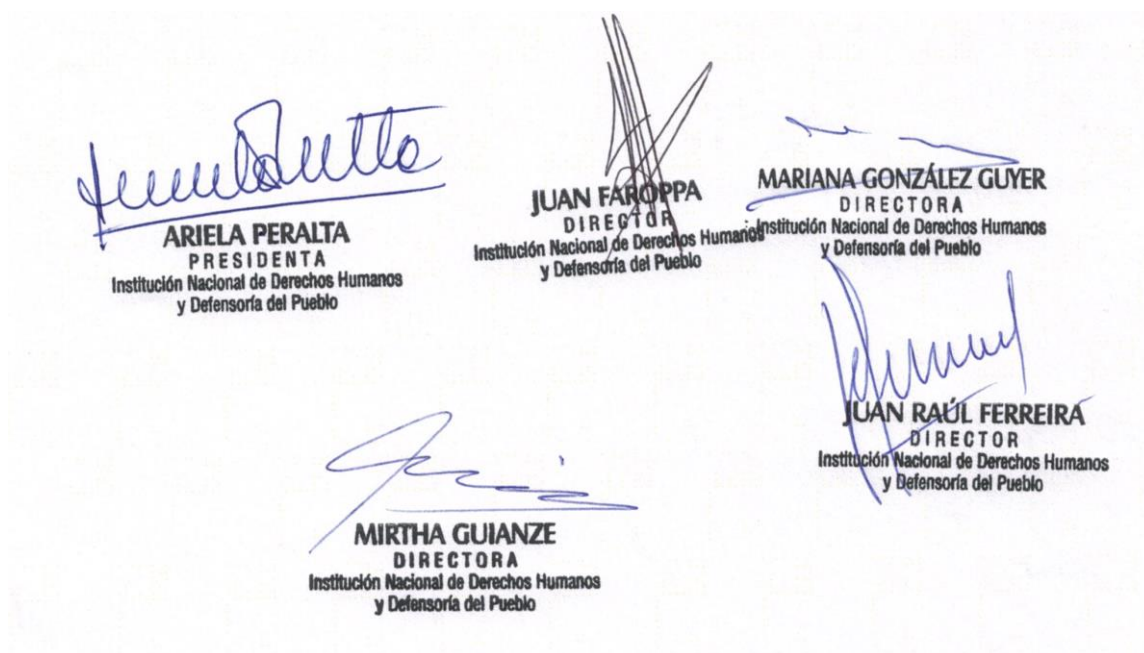 ARIELA PERALTA
PRESIDENTA
Institución Nacional de Derechos Humanos
y Defensoría del Pueblo
JUAN FAROPPA
DIRECTOR
Institución Nacional de Derechos Humanos
y Defensoría del Pueblo
MARIANA GONZÁLEZ GUYER
DIRECTORA
Institución Nacional de Derechos Humanos
y Defensoría del Pueblo
JUAN RAÚL FERREIRA
DIRECTOR
Institución Nacional de Derechos Humanos
y Defensoría del Pueblo
MIRTHA GUIANZE
DIRECTORA
Institución Nacional de Derechos Humanos
y Defensoría del Pueblo